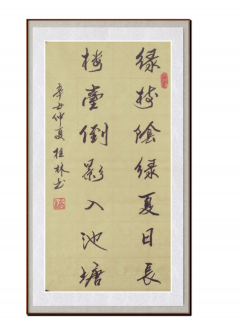 绿树陰绿夏日長
楼臺倒影入池塘
辛丑仲夏桂林书